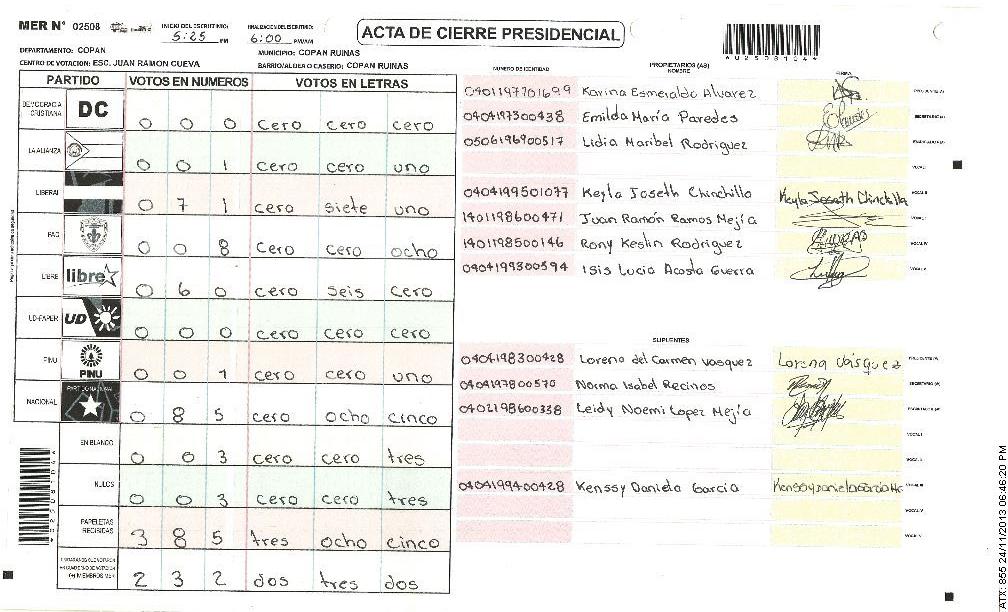 MER N° 02508
INICIO DEL ESCRUTINIO: 5:25 PM
FINALIZACION DEL ESCRUTINIO: 6:00 PM/AM
ACTA DE CIERRE PRESIDENCIAL
DEPARTAMENTO: COPAN
MUNICIPIO: COPAN RUINAS
CENTRO DE VOTACION: ESC. JUAN RAMON CUEVA
BARRIO/ALDEA O CASERIO: COPAN RUINAS
PARTIDO VOTOS EN NUMEROS VOTOS EN LETRAS
DEMOCRACIA CRISTIANA DC 0 0 0 cero cero cero
LA ALIANZA 0 0 1 cero cero uno
LIBERAL 0 7 1 cero siete uno
PAC 0 0 8 cero cero ocho
LIBRE libre 0 6 0 cero seis cero
UD-FAPER UD 0 0 0 cero cero cero
PINU PINU 0 0 1 cero cero uno
NACIONAL PARTIDO NACIONAL 0 8 5 cero ocho cinco
EN BLANCO 0 0 3 cero cero tres
NULOS 0 0 3 cero cero tres
PAPELETAS RECIBIDAS 3 8 5 tres ocho cinco
(+) MIEMBROS MER 2 3 2 dos tres dos
NUMERO DE IDENTIDAD
PROPIETARIOS (AS)
NOMBRE
FIRMA
0401197701699 Karina Esmeralda Alvarez PRESIDENTE(A)
0404197300438 Emilda María Paredes SECRETARIO(A)
0506196900517 Lidia Maribel Rodriguez ESCRUTADOR(A)
VOCAL I
0404199501077 Keyla Joseth Chinchilla Keyla Joseth Chinchilla VOCAL II
1401198600471 Juan Ramón Ramos Mejía
1401198500146 Rony Keslin Rodriguez VOCAL IV
0404199300594 Isis Lucia Acosta Guerra VOCAL V
SUPLENTES
0404198300428 Lorena del Carmen Vasquez Lorena Vásquez PRESIDENTE(A)
0404197800570 Norma Isabel Recinos SECRETARIO (A)
0402198600338 Leidy Noemi Lopez Mejía ESCRUTADOR (A)
VOCAL I
VOCAL II
0404199400428 Kenssy Daniela Garcia VOCAL III
VOCAL IV
VOCAL V
A02508104
ATX: 855 24/11/2013 06:46:20 PM